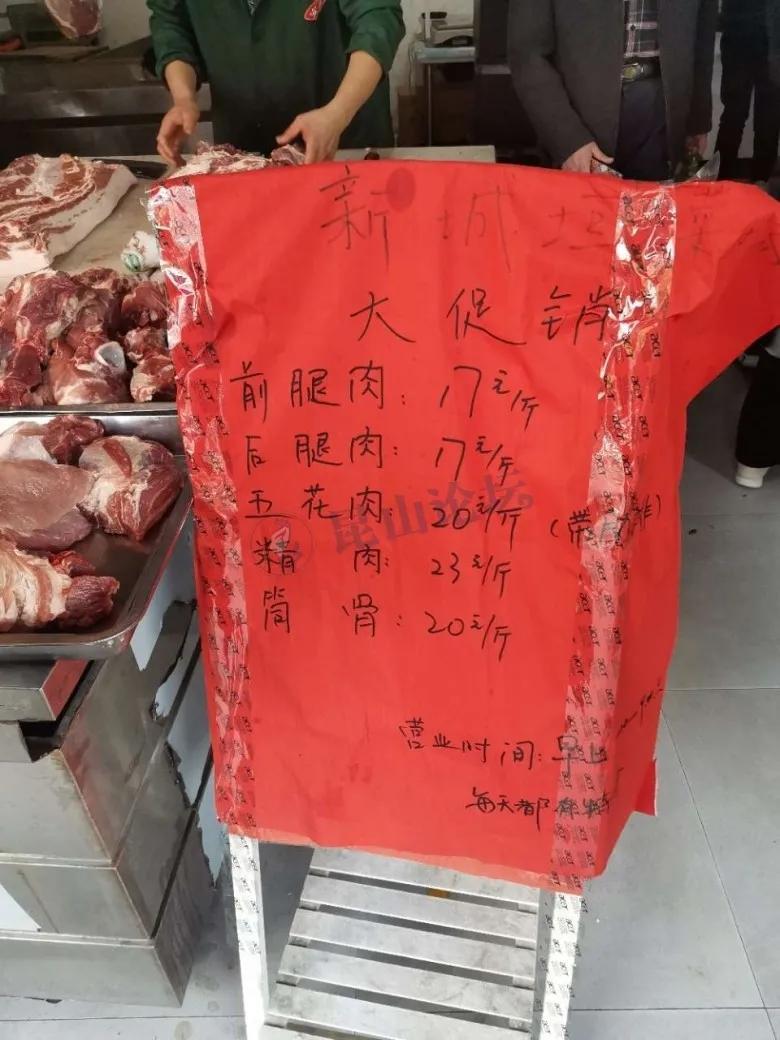 新城
大促销
前腿肉：17元/斤
后腿肉：17元/斤
五花肉：20元/斤（带
昆山论坛
精肉：23元/斤
筒骨：20元/斤
营业时间：早上
每天都有